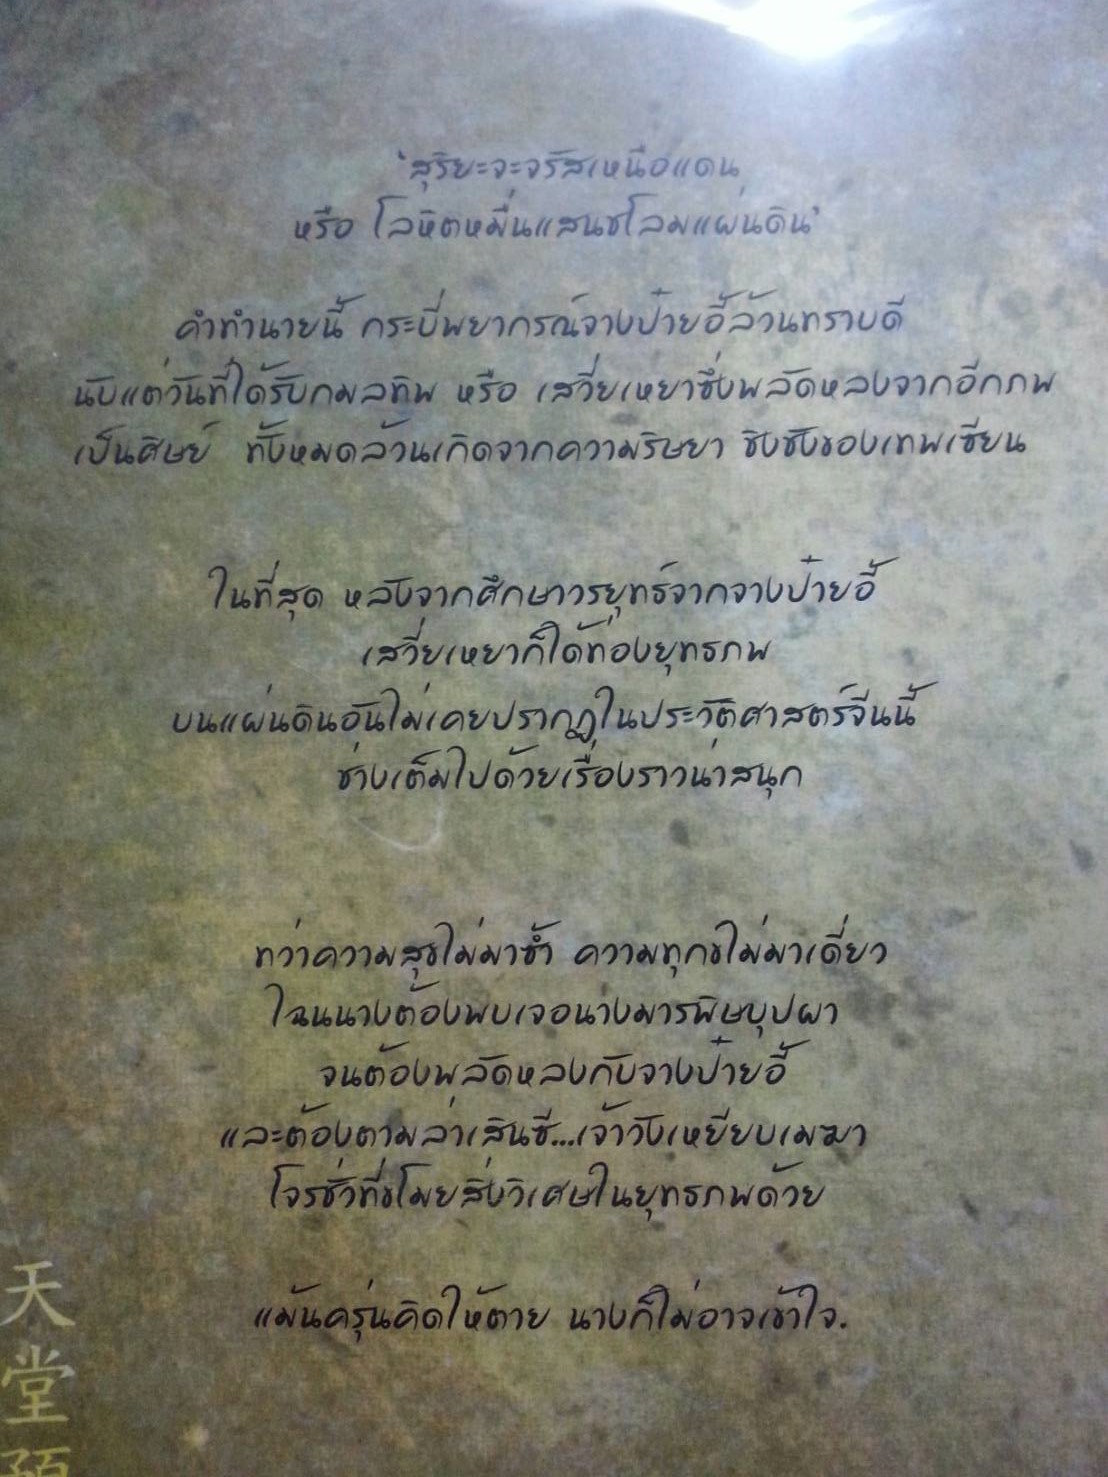 'สุริยะจะจรัสเหนือแดน
หรือ โลหิตหมื่นแสนชโลมแผ่นดิน'
คำทำนายนี้ กระบี่พยากรณ์จางป๋ายอี้ล้วนทราบดี
นับแต่วันที่ได้รับกมลทิพ หรือ เสวี่ยเหยาซึ่งพลัดหลงจากอีกภพ
เป็นศิษย์ ทั้งหมดล้วนเกิดจากความริษยา ชิงชังของเทพเซียน
ในที่สุด หลังจากศึกษาวรยุทธ์จากจางป๋ายอี้
เสวี่ยเหยาก็ได้ท่องยุทธภพ
บนแผ่นดินอันไม่เคยปรากฏในประวัติศาสตร์จีนนี้
ช่างเต็มไปด้วยเรื่องราวน่าสนุก
ทว่าความสุขไม่มาซ้ำ ความทุกข์ไม่มาเดี่ยว
ไฉนนางต้องพบเจอนางมารพิษบุปผา
จนต้องพลัดหลงกับจางป๋ายอี้
และต้องตามล่าเสินซี...เจ้าวังเหยียบเมฆา
โจรชั่วที่ขโมยสิ่งวิเศษในยุทธภพด้วย
แม้นครุ่นคิดให้ตาย นางก็ไม่อาจเข้าใจ.
天
堂
預